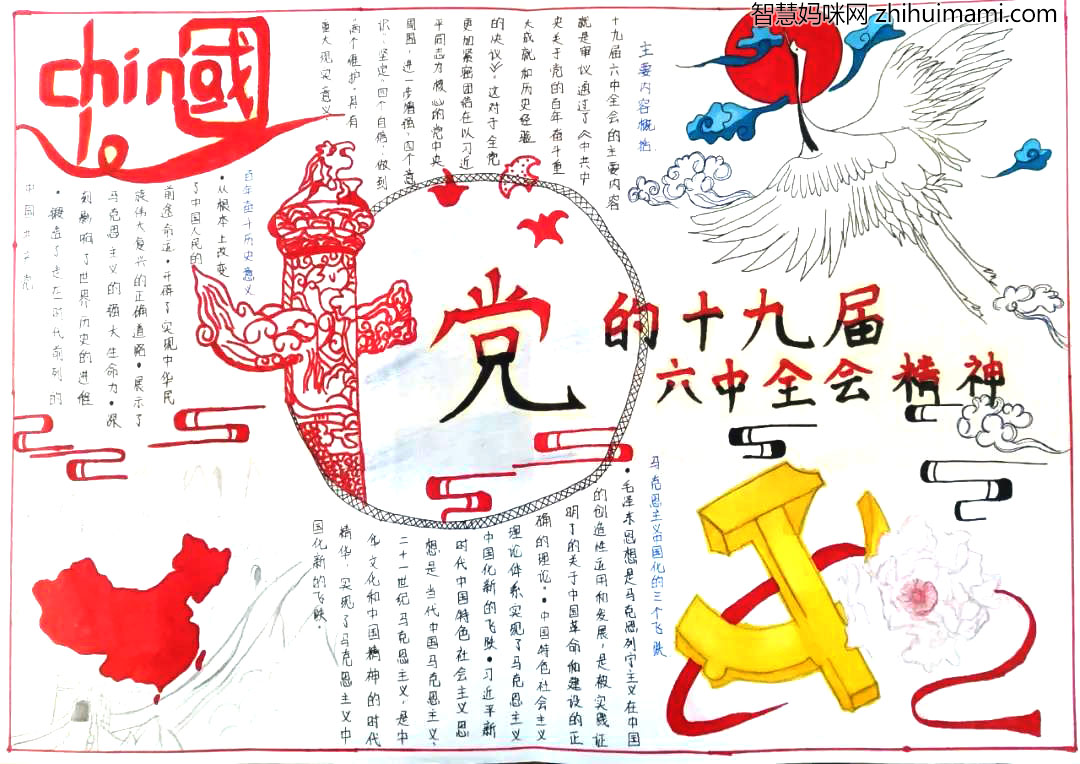 智慧妈咪网 zhihuimami.com
china
國
党
的十九届
六中全会精神
主要内容概括
十九届六中全会的主要内容
就是审议通过了《中共中
央关于党的百年奋斗重
大成就和历史经验
的决议》。这对于全党
更加紧密团结在以习近
平同志为核心的党中央
周围，进一步增强“四个意
识”，坚定“四个自信”，做到
“两个维护”，具有
重大现实意义。
百年奋斗历史意义
•从根本上改变
了中国人民的
前途命运•开辟了实现中华民
族伟大复兴的正确道路•展示了
马克思主义的强大生命力•深
刻影响了世界历史的进程
•锻造了走在时代前列的
中国共产党
马克思主义中国化的三个飞跃
•毛泽东思想是马克思列宁主义在中国
的创造性运用和发展，是被实践证
明了的关于中国革命和建设的正
确的理论。•中国特色社会主义
理论体系实现了马克思主义
中国化新的飞跃•习近平新
时代中国特色社会主义思
想是当代中国马克思主义、
二十一世纪马克思主义，是中
华文化和中国精神的时代
精华，实现了马克思主义中
国化新的飞跃。